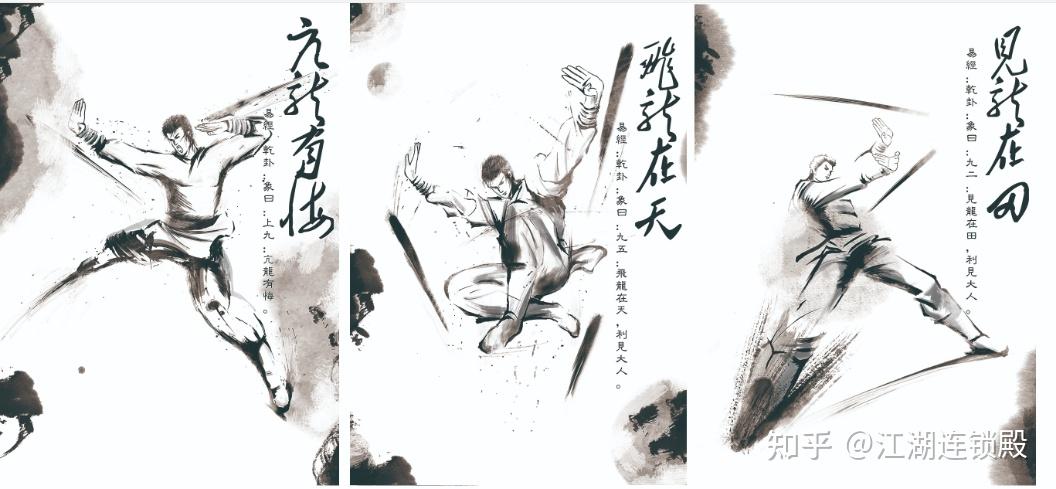 亢龍有悔
易經：乾卦：象曰：上九：亢龍有悔。
飛龍在天
易經：乾卦：象曰：九五：飛龍在天，利見大人。
見龍在田
易經：乾卦：象曰：九二：見龍在田，利見大人。
知乎 @江湖连锁殿